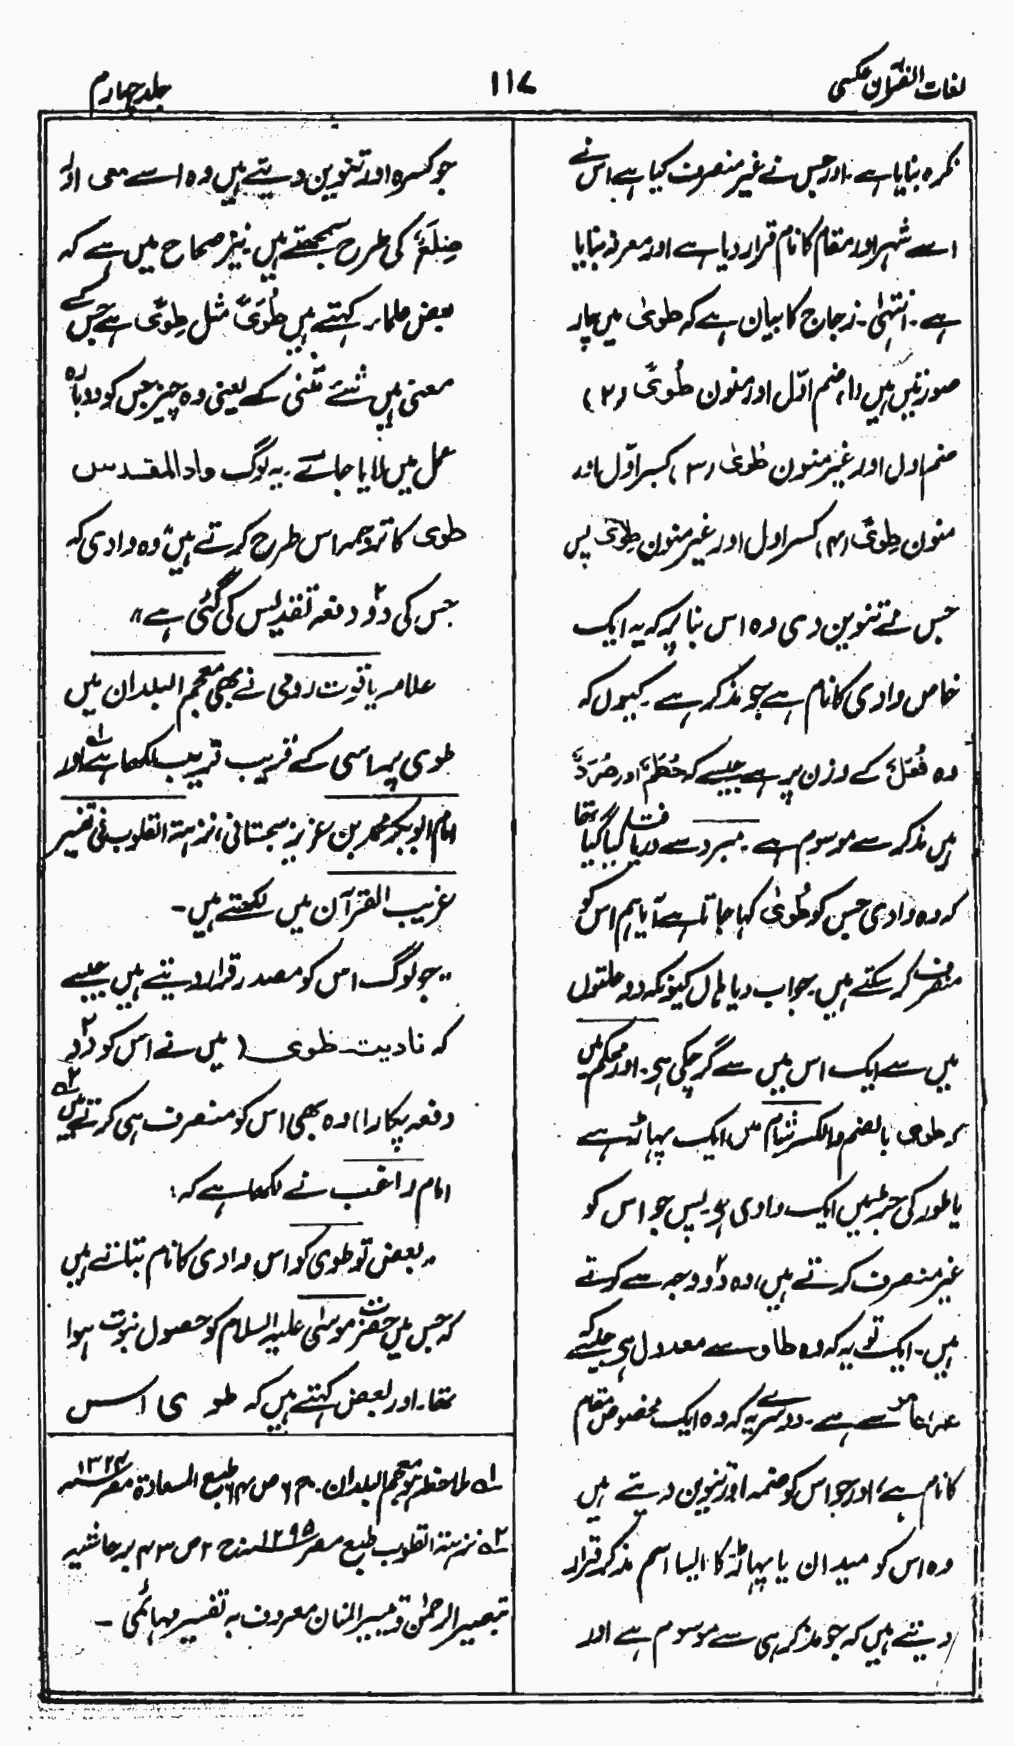 لغات القرآن عکسی
۱۱۷
جلد چہارم
نکرہ بنایا ہے۔ اور جس نے غیر منصرف کیا ہے اس نے
اسے شہر اور مقام کا نام قرار دیا ہے اور معرفہ بنایا
ہے۔ انتہٰی۔ زجاج کا بیان ہے کہ طویٰ میں چار
صورتیں ہیں (۱) ضم اوّل اور منون طُوًی (۲)
ضم اول اور غیر منون طُویٰ (۳) کسر اوّل اور
منون طِوًی (۴) کسر اول اور غیر منون طِویٰ پس
جس نے تنوین دی وہ اس بنا پر کہ یہ ایک
خاص وادی کا نام ہے جو مذکر ہے۔ کیوں کہ
وہ فُعَلٌ کے وزن پر ہے جیسے کہ حُطَمٌ اور صُرَدٌ
ہیں مذکر سے موسوم ہے۔ مبرد سے دریافت کیا گیا تھا
کہ وہ وادی جس کو طُویٰ کہا جاتا ہے آیا ہم اس کو
منصرف کر سکتے ہیں۔ جواب دیا ہاں کیونکہ دو علتوں
میں سے ایک اس میں سے گر چکی ہے۔ اور محکم میں
کہ طوی بالضم والکسر شام میں ایک پہاڑ ہے
یا طور کی جڑ میں ایک وادی ہے پس جو اس کو
غیر منصرف کرتے ہیں، وہ دو وجہ سے کرتے
ہیں۔ ایک تو یہ کہ وہ طاوٍ سے معدول ہے جیسے کہ
عمر عامر سے ہے۔ دوسرے یہ کہ وہ ایک مخصوص مقام
کا نام ہے، اور جو اس کو ضمہ اور تنوین دیتے ہیں
وہ اس کو میدان یا پہاڑ کا ایسا اسم مذکر قرار
دیتے ہیں کہ جو مذکر ہی سے موسوم ہے اور
جو کسرہ اور تنوین دیتے ہیں وہ اسے معی اور
ضِلَعٌ کی طرح سمجھتے ہیں نیز صحاح میں ہے کہ
بعض علماء کہتے ہیں طُوًی مثل طِوًی ہے جس کے
معنی ہیں شئے مثنی کے یعنی وہ چیز جس کو دوبارہ
عمل میں لایا جائے۔ یہ لوگ واد المقدس
طوی کا ترجمہ اس طرح کرتے ہیں "وہ وادی کہ
جس کی دو دفعہ تقدیس کی گئی ہے"
علامہ یاقوت رومی نے بھی معجم البلدان میں
طوی پر اسی کے قریب قریب لکھا ہے لہ اور
امام ابو بکر محمد بن عزیز سجستانی، نزہۃ القلوب فی تفسیر
غریب القرآن میں لکھتے ہیں۔
"جو لوگ اس کو مصدر قرار دیتے ہیں جیسے
کہ نادیت طوی (میں نے اس کو دو
دفعہ پکارا) وہ بھی اس کو منصرف ہی کرتے ہیں ۲ہ
امام راغب نے لکھا ہے کہ:
"بعض تو طوی کو اس وادی کا نام بتلاتے ہیں
کہ جس میں حضرت موسٰی علیہ السلام کو حصول نبوت ہوا
تھا۔ اور بعض کہتے ہیں کہ طوی اس
لہ ملاحظہ ہو معجم البلدان۔ ج ۶ ص ۶۴ طبع السعادۃ مصر ۱۳۲۴ھ
۲ہ نزہۃ القلوب طبع مصر ۱۲۹۵ھ ج ۲ ص ۴۳ بر حاشیہ
تبصیر الرحمٰن و تیسیر المنان معروف بہ تفسیر مہائمی۔